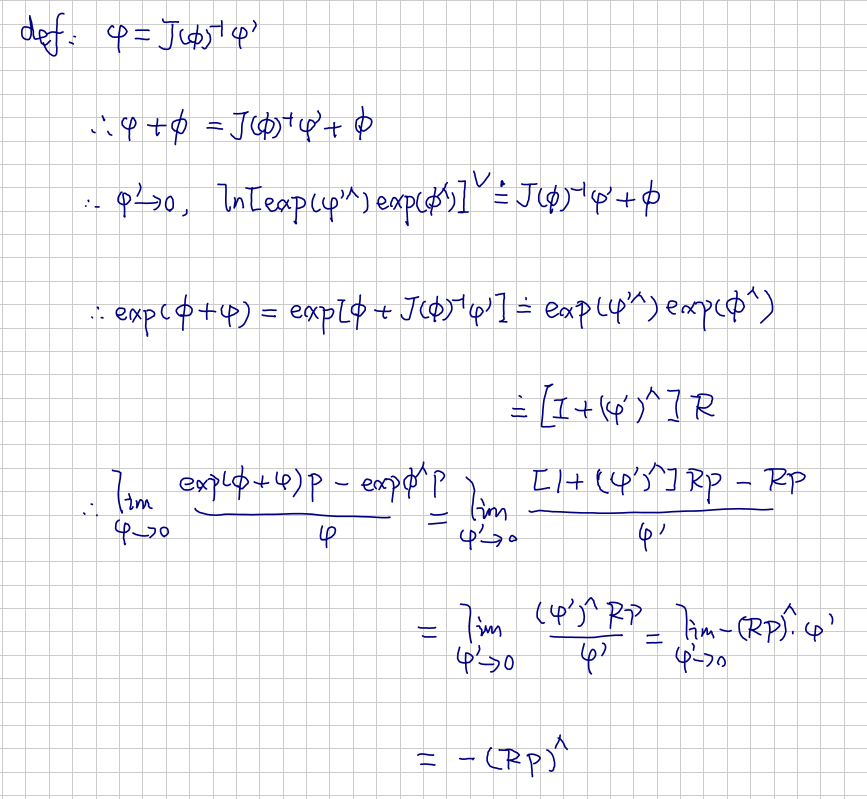 def: φ = J(ϕ)⁻¹ φ'
∴ φ + ϕ = J(ϕ)⁻¹ φ' + ϕ
∴ φ' → 0, ln[exp(φ'^) exp(ϕ^)]^∨ ≐ J(ϕ)⁻¹ φ' + ϕ
∴ exp(ϕ + φ) = exp[ϕ + J(ϕ)⁻¹ φ'] ≐ exp(φ'^) exp(ϕ^)
≐ [I + (φ')^] R
∴ lim_{φ→0} (exp(ϕ + φ)p − expϕ^p) / φ = lim_{φ'→0} ([1 + (φ')^] Rp − Rp) / φ'
= lim_{φ'→0} ((φ')^ Rp) / φ' = lim_{φ'→0} −(Rp)^· φ'
= −(Rp)^